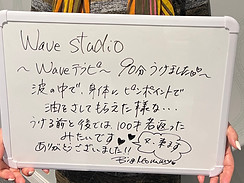 Wave studio
～Waveテラピー～ 90分うけました
波の中で、身体にピンポイントで
油をさしてもらえた様な…
うける前と後では100才若返った
みたいです♥♥ 又、来ます
ありがとうございました!!